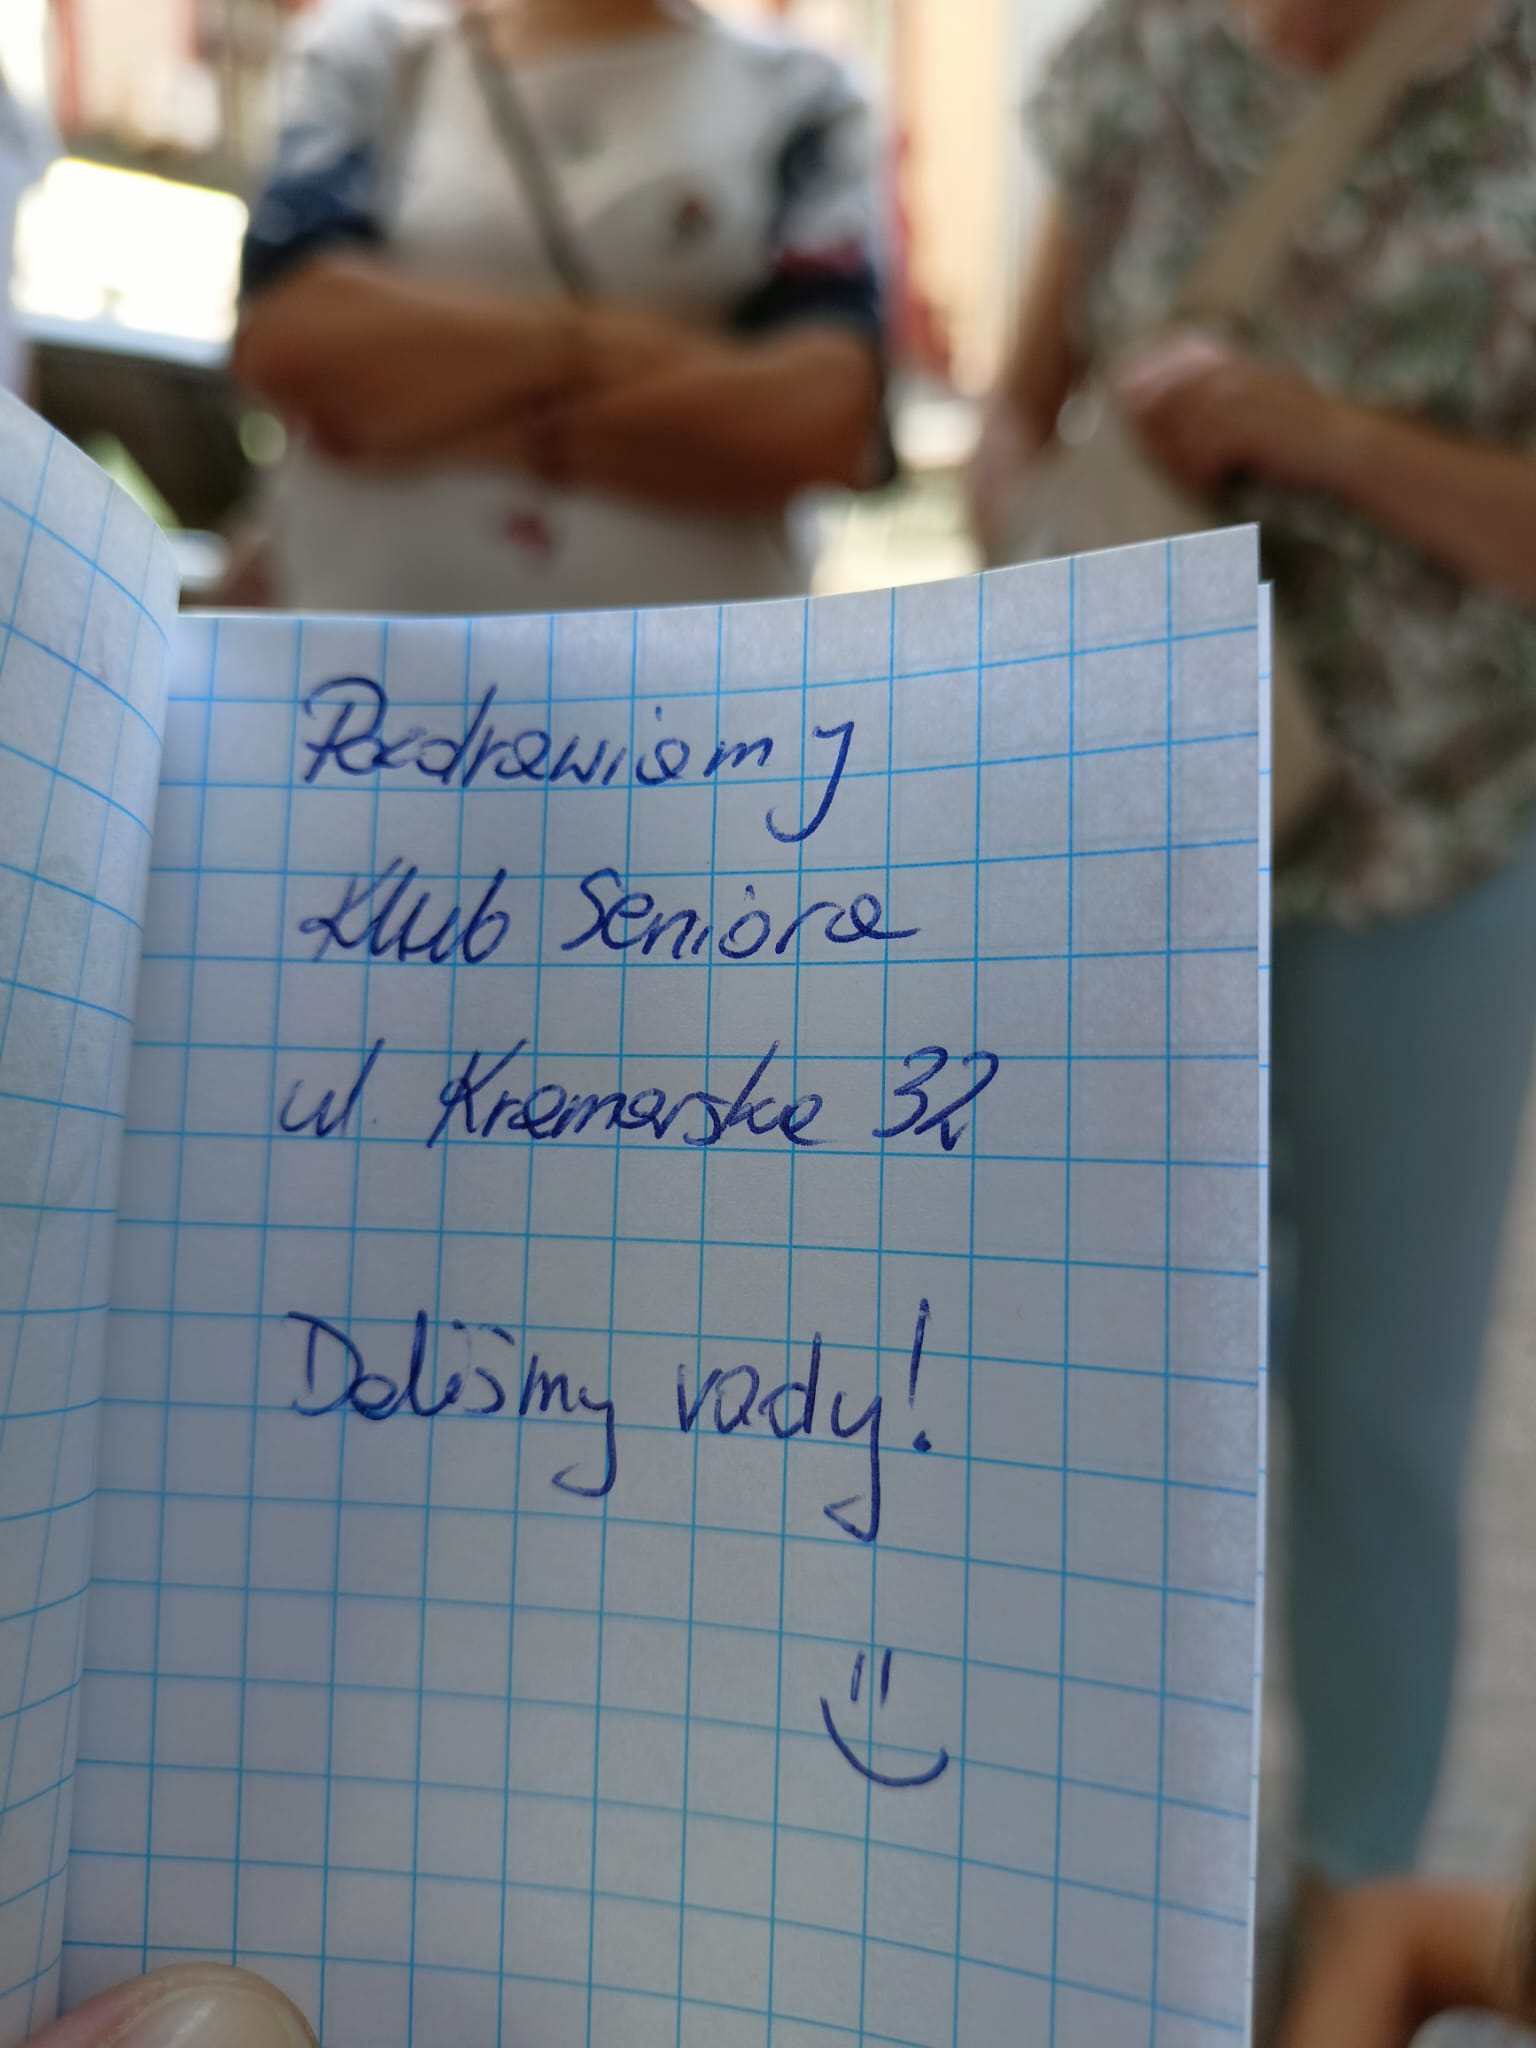 Pozdrawiamy
Klub Seniora
ul. Kramarska 32
Daliśmy rady!